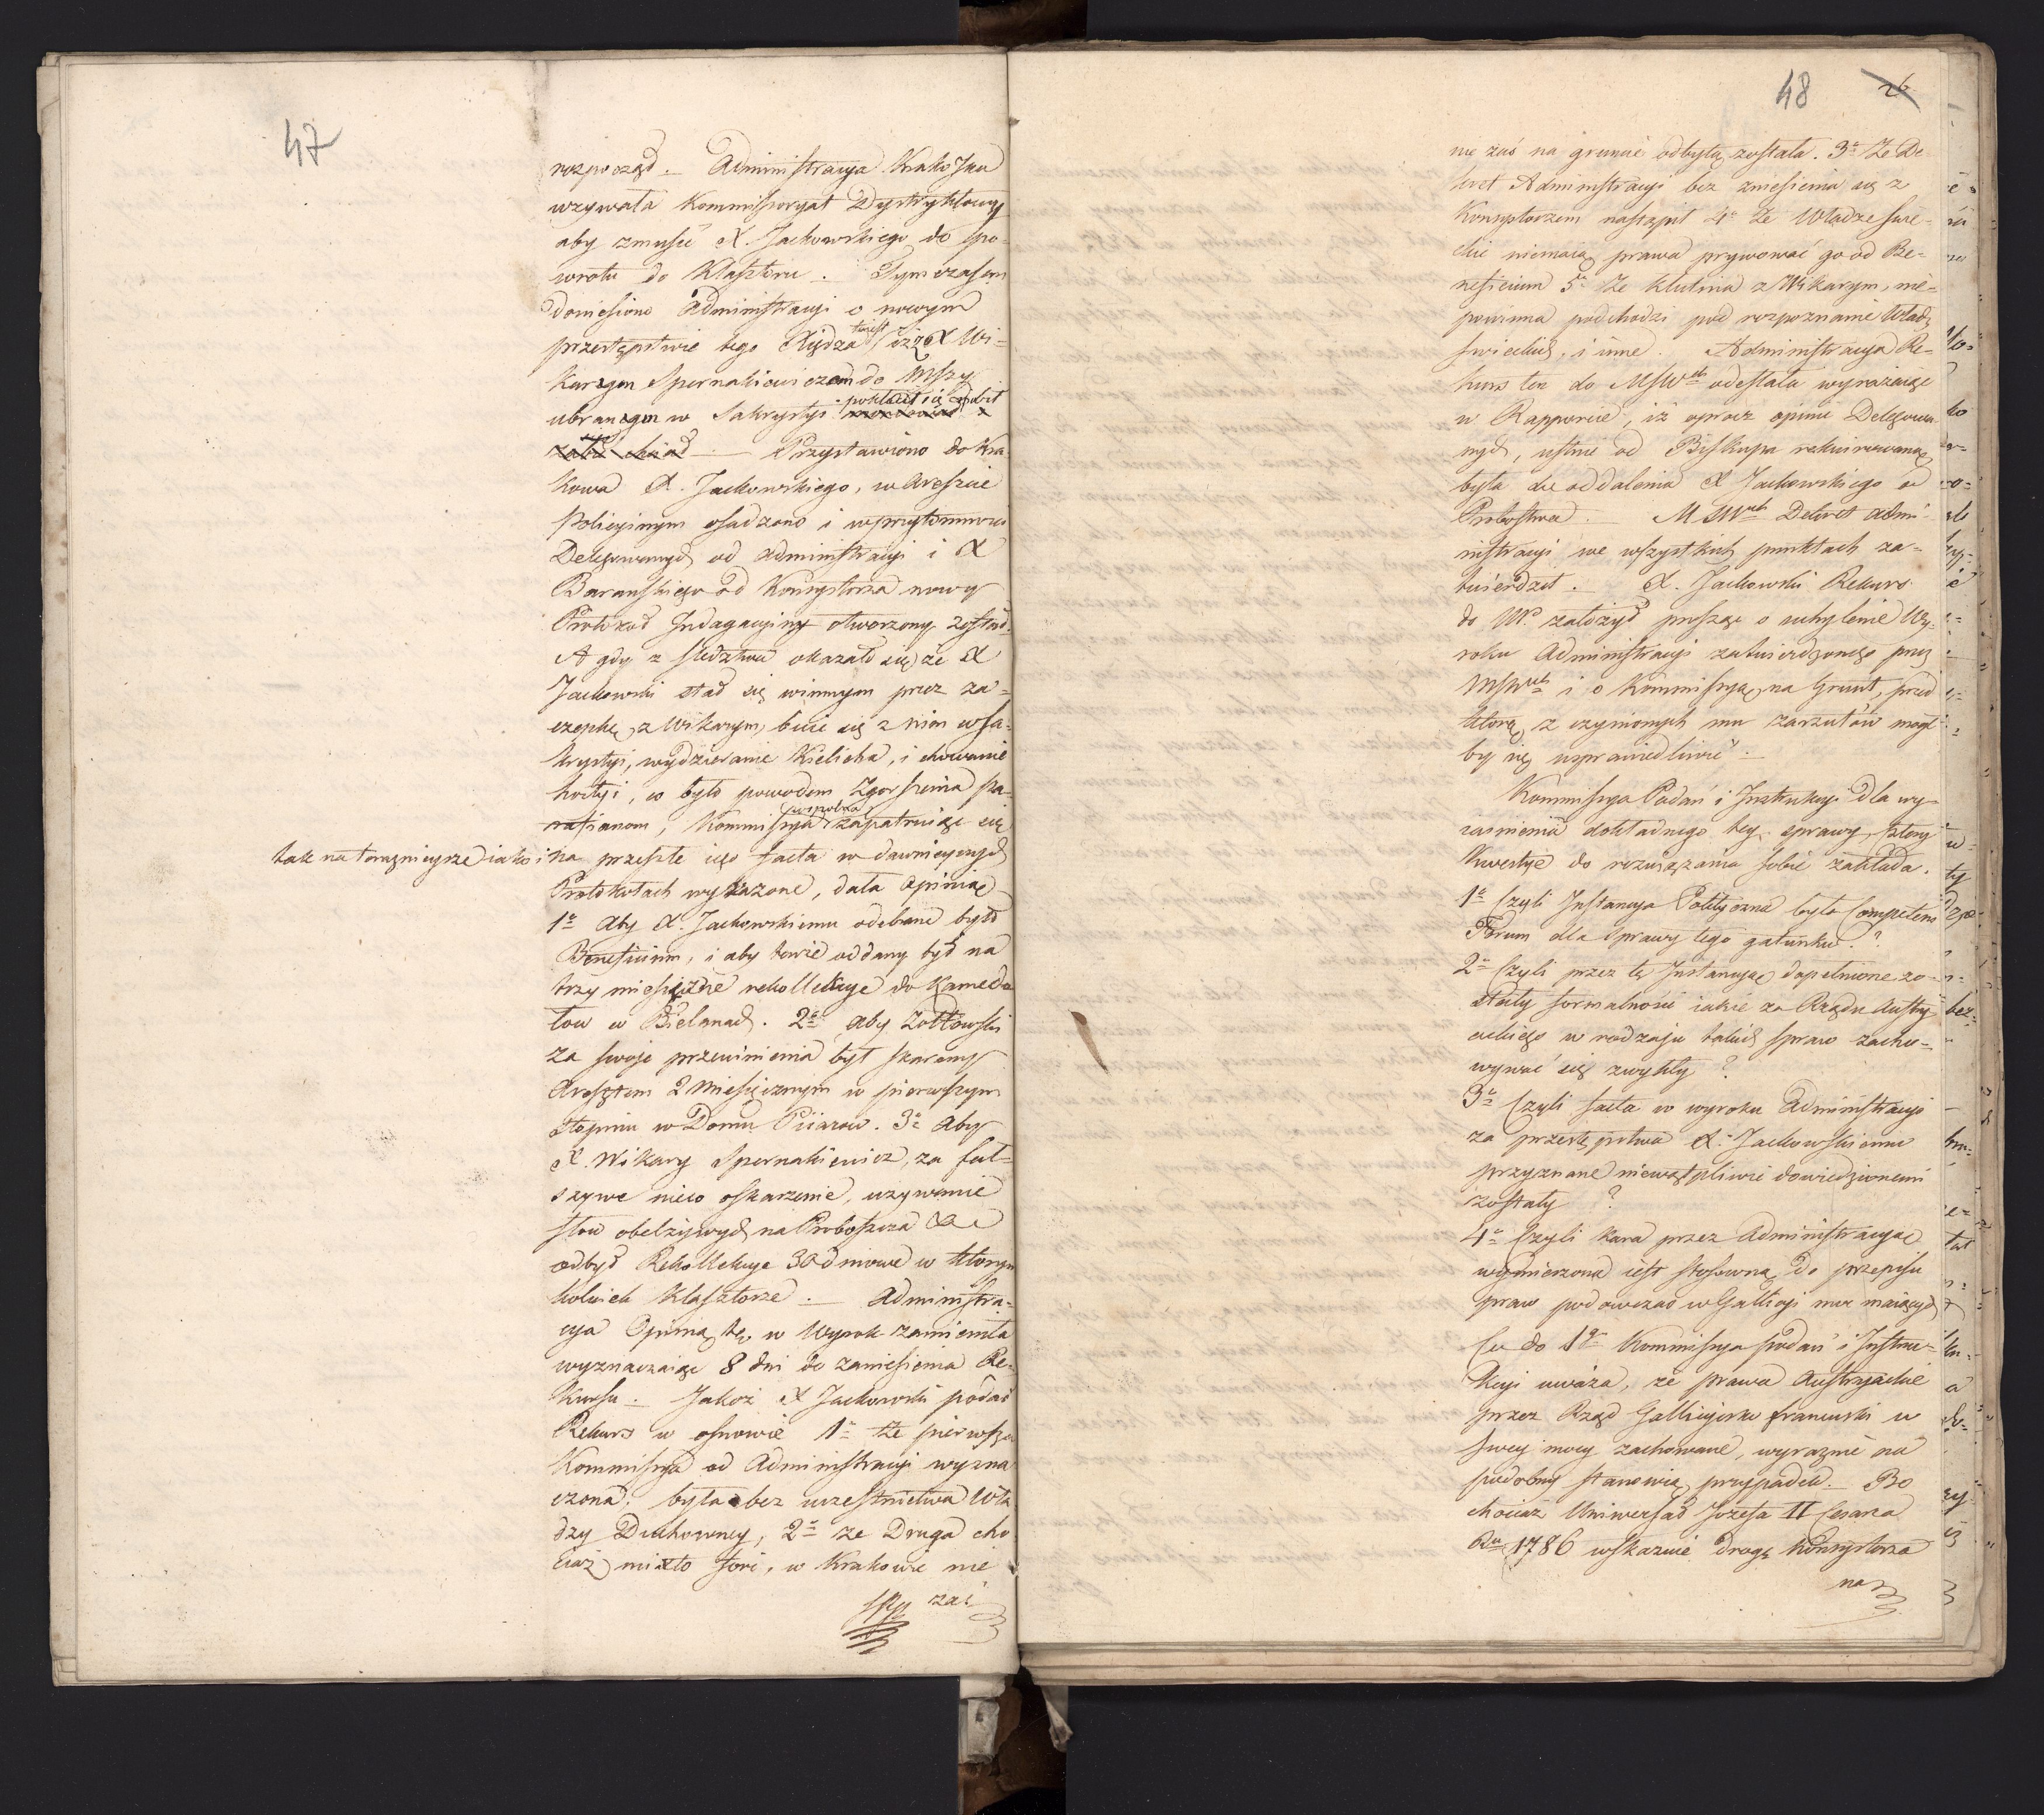 47
rozporząd. — Administracya Krakowska
wzywała Kommissoryat Dystryktowy
aby zmusić X. Jackowskiego do po-
wrotu do Klasztoru. — Tym czasem
doniesiono Administracyi o nowym
przestępstwie tego Xiędza iż z X Wi-
karym Spernakiewiczem do Mszy
ubranym w Sakrystyi pokłócił się i pobił
— Przystawiono do Kra-
kowa X. Jackowskiego, w Areszcie
Policyinym osadzono i w przytomności
Delegowanych od Administracyi i X
Baranskiego od Konsystorza nowy
Protokół Indagacyiny otworzony został.
A gdy z śledztwa okazało się że X
Jackowski stał się winnym przez za-
czepkę z Wikarym, bicie się z nim w Sa-
krystyi, wydzieranie Kielicha, i chowanie
hostyi, co było powodem Zgorszenia pa-
rafianom, Kommissya zapatruiąc się
tak na teraznieysze iako i na przeszłe iego facta w dawnieyszych
Protokołach wykazane, dała Opinią
1º Aby X. Jackowskiemu odebrane było
Beneficium, i aby tenże oddany był na
trzy miesięczne rekollekcye do Kamedu-
łow w Bielanach. 2º aby Zołtowski
za swoje przewinienia był skarany
Aresztem 2 Miesięcznym w pierwszym
stopniu w Domu Piiarow. 3º Aby
X. Wikary Spernakiewicz, za fał-
szywe nieco oskarzenie, uzywanie
słow obelżywych na Proboszcza &c
odbył Rekollekcye 30 dniowe w którym
kolwiek Klasztorze. — Administra-
cya Opinią tę w Wyrok zamieniła
wyznaczaiąc 8 dni do zaniesienia Re-
kursu. — Jakoż X Jackowski podał
Rekurs w osnowie 1º że pierwsza
Kommissya od Administracyi wyzna-
czona, była bez uczestnictwa Wła-
dzy Duchowney, 2º że Druga cho-
ciaż mixto fori, w Krakowie nie
zaś
48
nie zaś na gruncie odbytą została. 3º Że De-
kret Administracyi bez zniesienia się z
Konsystorzem nastąpił 4º Że Władze świe-
ckie niemaią prawa prywować go od Be-
neficium 5º Że kłutnia z Wikarym, nie-
powinna podchodzić pod rozpoznanie Władz
świeckich, i inne. Administracya Re-
kurs ten do MSWeh odesłała wyrażaiąc
w Rapporcie, iż oprocz opinii Delegowa-
nych, ustnie od Biskupa rekwirowaną
była do oddalenia X Jackowskiego od
Probostwa. MSWeh Dekret Admi-
nistracyi we wszystkich punktach za-
twierdził. — X. Jackowski Rekurs
do założył prosząc o uchylenie Wy-
roku Administracyi zatwierdzonego przez
MSWeh i o Kommissyą na Grunt, przed
którą z czynionych mu zarzutów mogł-
by się usprawiedliwić —
Kommissya Podań i Instrukcyi dla wy-
iasnienia dokładnego tey sprawy, cztery
Kwestye do rozwiązania sobie zakłada.
1º Czyli Instancya Polityczna była Competens
Forum dla Sprawy tego gatunku?
2º Czyli przez tę Instancyą dopełnione zo-
stały formalności iakie za Rządu Austry-
ackiego w rodzaju takich spraw zacho-
wywać się zwykły?
3º Czyli facta w wyroku Administracyi
za przestępstwa X. Jackowskiemu
przyznane niewątpliwie dowiedzionemi
zostały?
4º Czyli kara przez Administracyą
wymierzona iest stosowną do przepisu
praw podowczas w Gallicyi moc maiących
Co do 1go Kommissya podań i Instru-
kcyi uważa, że prawa Austryackie
przez Rząd Gallicyisko francuski w
swey mocy zachowane, wyraznie na
podobny stanowią przypadek. — Bo
chociaż Uniwersał Jozefa II Cesarza
Ru 1786 wskazuie drogę Konsystorza
na